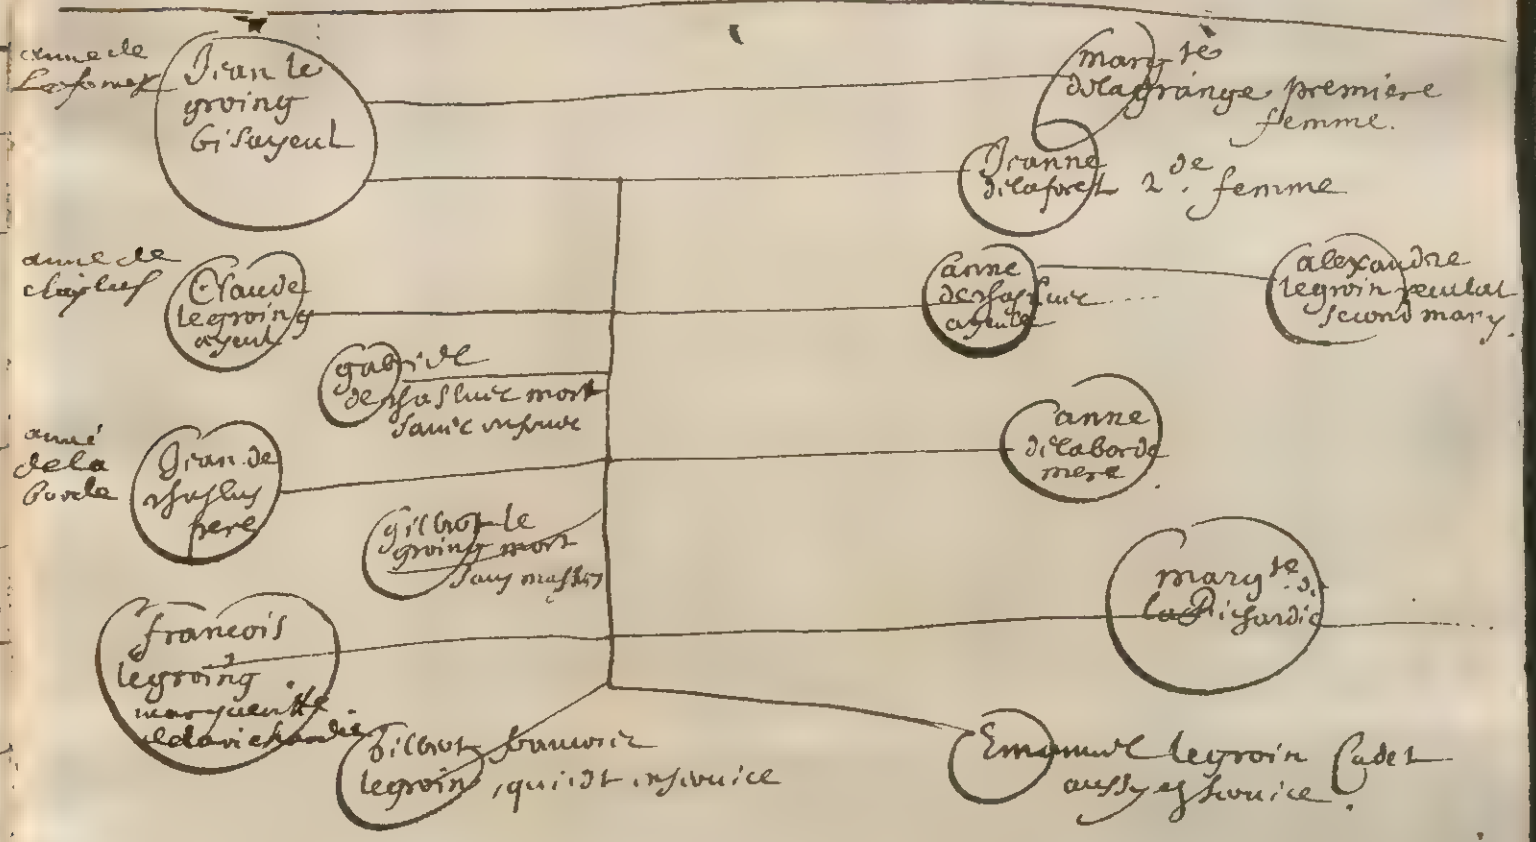 anne de
Lafores
Jean le
groing
bisayeul
marg te
delagrange premiere
femme.
Jeanne
delaforest 2.de femme
anne de
chaslus
Claude
legroing
ayeul
anne
de chasluic
ayeule
alexandre
legroin
second mary.
gabriel
de chasluic mort
anne
dela
borde
Jean de
chaslus
pere
anne
delaborde
mere
gilbert le
groing mort
sans
francois
legroing
marguerite
delarichardie
marg te d
la Richardie
Gilbert francois
legroin, qui est in service
Emanuel legroin Cadet
aussy service.